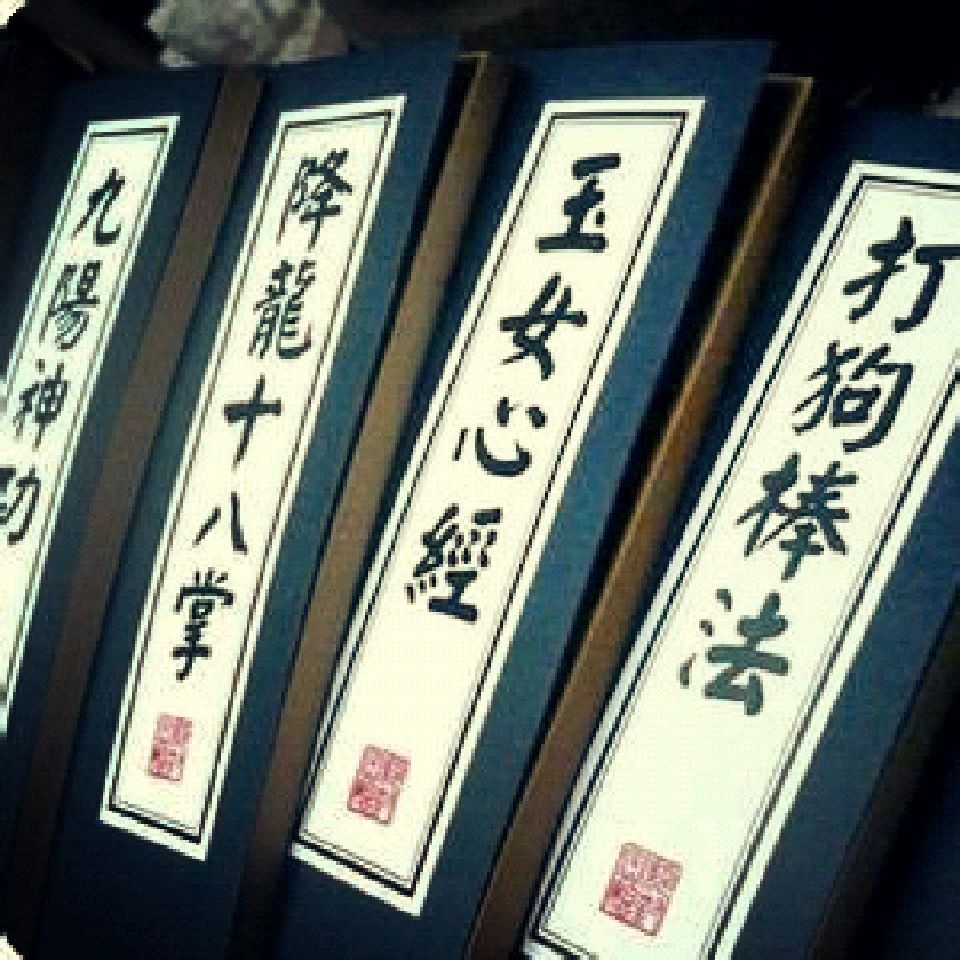 九陽神功
降龍十八掌
玉女心經
打狗棒法